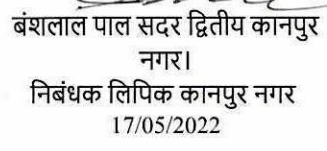 बंशलाल पाल सदर द्वितीय कानपुर
नगर।
निबंधक लिपिक कानपुर नगर
17/05/2022